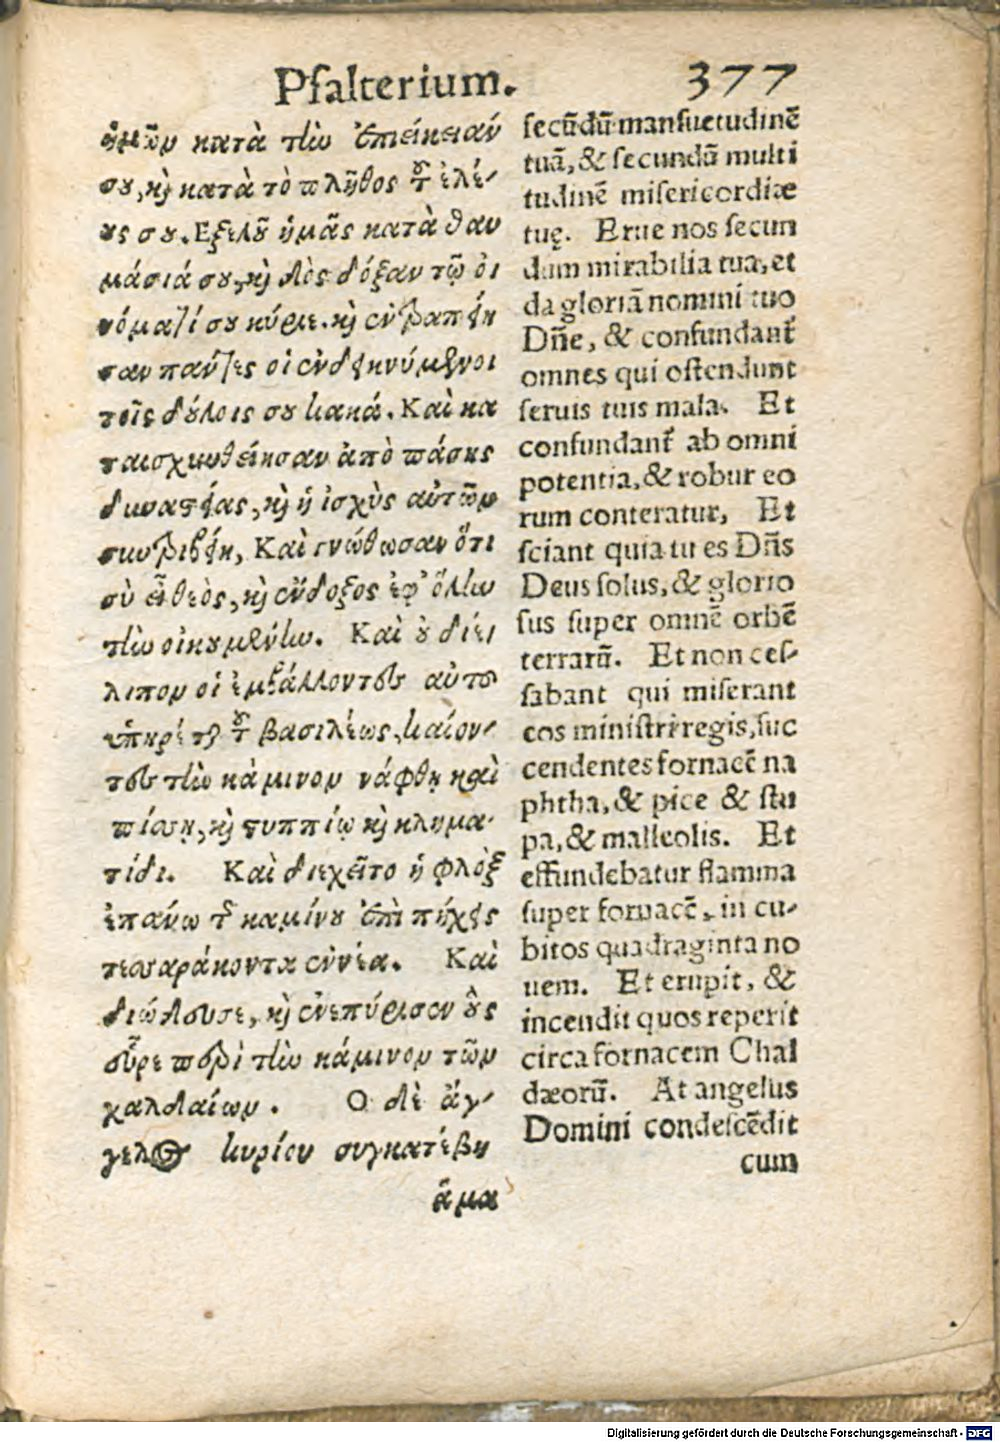 Psalterium. 377
ἡμῶν κατὰ τὴν ἐπιείκειάν
σου, καὶ κατὰ τὸ πλῆθος τοῦ ἐλέ-
ους σου. Εξελοῦ ἡμᾶς κατὰ θαυ
μάσιά σου, καὶ δὸς δόξαν τῷ ὀ
νόματί σου κύριε. καὶ ἐντραπείη
σαν πάντες οἱ ἐνδεικνύμενοι
τοῖς δούλοις σου κακά. Καὶ κα
ταισχυνθείησαν ἀπὸ πάσης
δυναστείας, καὶ ἡ ἰσχὺς αὐτῶν
συντριβείη, Καὶ γνώθωσαν ὅτι
σὺ εἶ θεὸς, καὶ ἔνδοξος ἐφ' ὅλην
τὴν οἰκουμένην. Καὶ οὐ διέ
λιπον οἱ ἐμβάλλοντες αὐτοὺς
ὑπηρέται τοῦ βασιλέως, καίον-
τες τὴν κάμινον νάφθῃ καὶ
πίσσῃ, καὶ στυππίῳ καὶ κλημα-
τίδι. Καὶ διεχεῖτο ἡ φλὸξ
ἐπάνω τῆς καμίνου ἐπὶ πήχεις
τεσσαράκοντα ἐννέα. Καὶ
διώδευσε, καὶ ἐνεπύρισεν οὓς
εὗρε περὶ τὴν κάμινον τῶν
χαλδαίων. Ο δὲ ἄγ-
γελος κυρίου συγκατέβη
ἅμα
secūdū mansuetudinē
tuā, & secundū multi
tudinē misericordiæ
tuę. Erue nos secun
dum mirabilia tua, et
da gloriā nomini tuo
Dñe, & confundant᷑
omnes qui ostendunt
seruis tuis mala. Et
confundant᷑ ab omni
potentia, & robur eo
rum conteratur, Et
sciant quia tu es Dñs
Deus solus, & glorio
sus super omnē orbē
terrarū. Et non ces-
sabant qui miserant
eos ministri regis, suc
cendentes fornacē na
phtha, & pice & stu
pa, & malleolis. Et
effundebatur flamma
super fornacē, in cu-
bitos quadraginta no
uem. Et erupit, &
incendit quos reperit
circa fornacem Chal
dæorū. At angelus
Domini condescēdit
cum
Digitalisierung gefördert durch die Deutsche Forschungsgemeinschaft - DFG